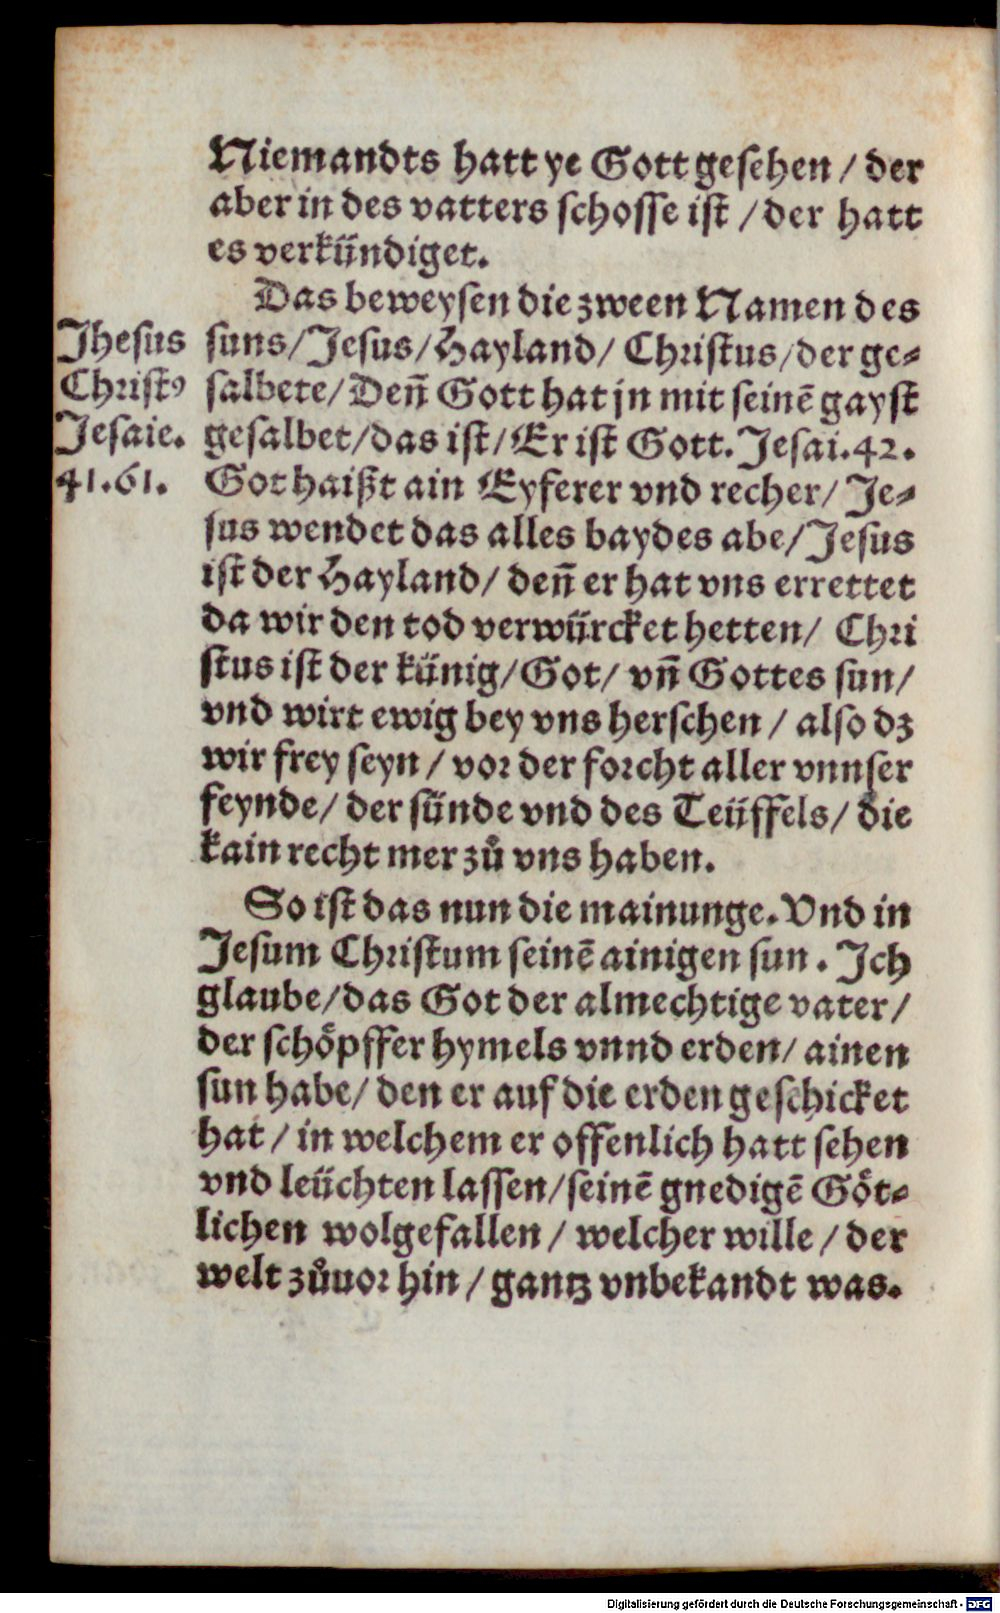 Niemandts hatt ye Gott gesehen / der
aber in des vatters schosse ist / der hatt
es verkündiget.
Das beweysen die zween Namen des
Jhesus
Christꝰ
Jesaie.
41.61.
suns/Jesus/Hayland/ Christus/der ge⸗
salbete/Deñ Gott hat jn mit seinẽ gayst
gesalbet/das ist/Er ist Gott. Jesai.42.
Got haißt ain Eyferer vnd recher/ Je⸗
sus wendet das alles baydes abe/Jesus
ist der Hayland/ deñ er hat vns errettet
da wir den tod verwürcket hetten/ Chri
stus ist der künig/Got/ vñ Gottes sun/
vnd wirt ewig bey vns herschen / also dz
wir frey seyn / vor der forcht aller vnnser
feynde/ der sünde vnd des Teüffels/ die
kain recht mer zů vns haben.
So ist das nun die mainunge. Vnd in
Jesum Christum seinẽ ainigen sun. Ich
glaube/das Got der almechtige vater/
der schöpffer hymels vnnd erden/ ainen
sun habe/ den er auf die erden geschicket
hat / in welchem er offenlich hatt sehen
vnd leüchten lassen/seinẽ gnedigẽ Göt⸗
lichen wolgefallen / welcher wille / der
welt zůuor hin / gantz vnbekandt was.
Digitalisierung gefördert durch die Deutsche Forschungsgemeinschaft - DFG